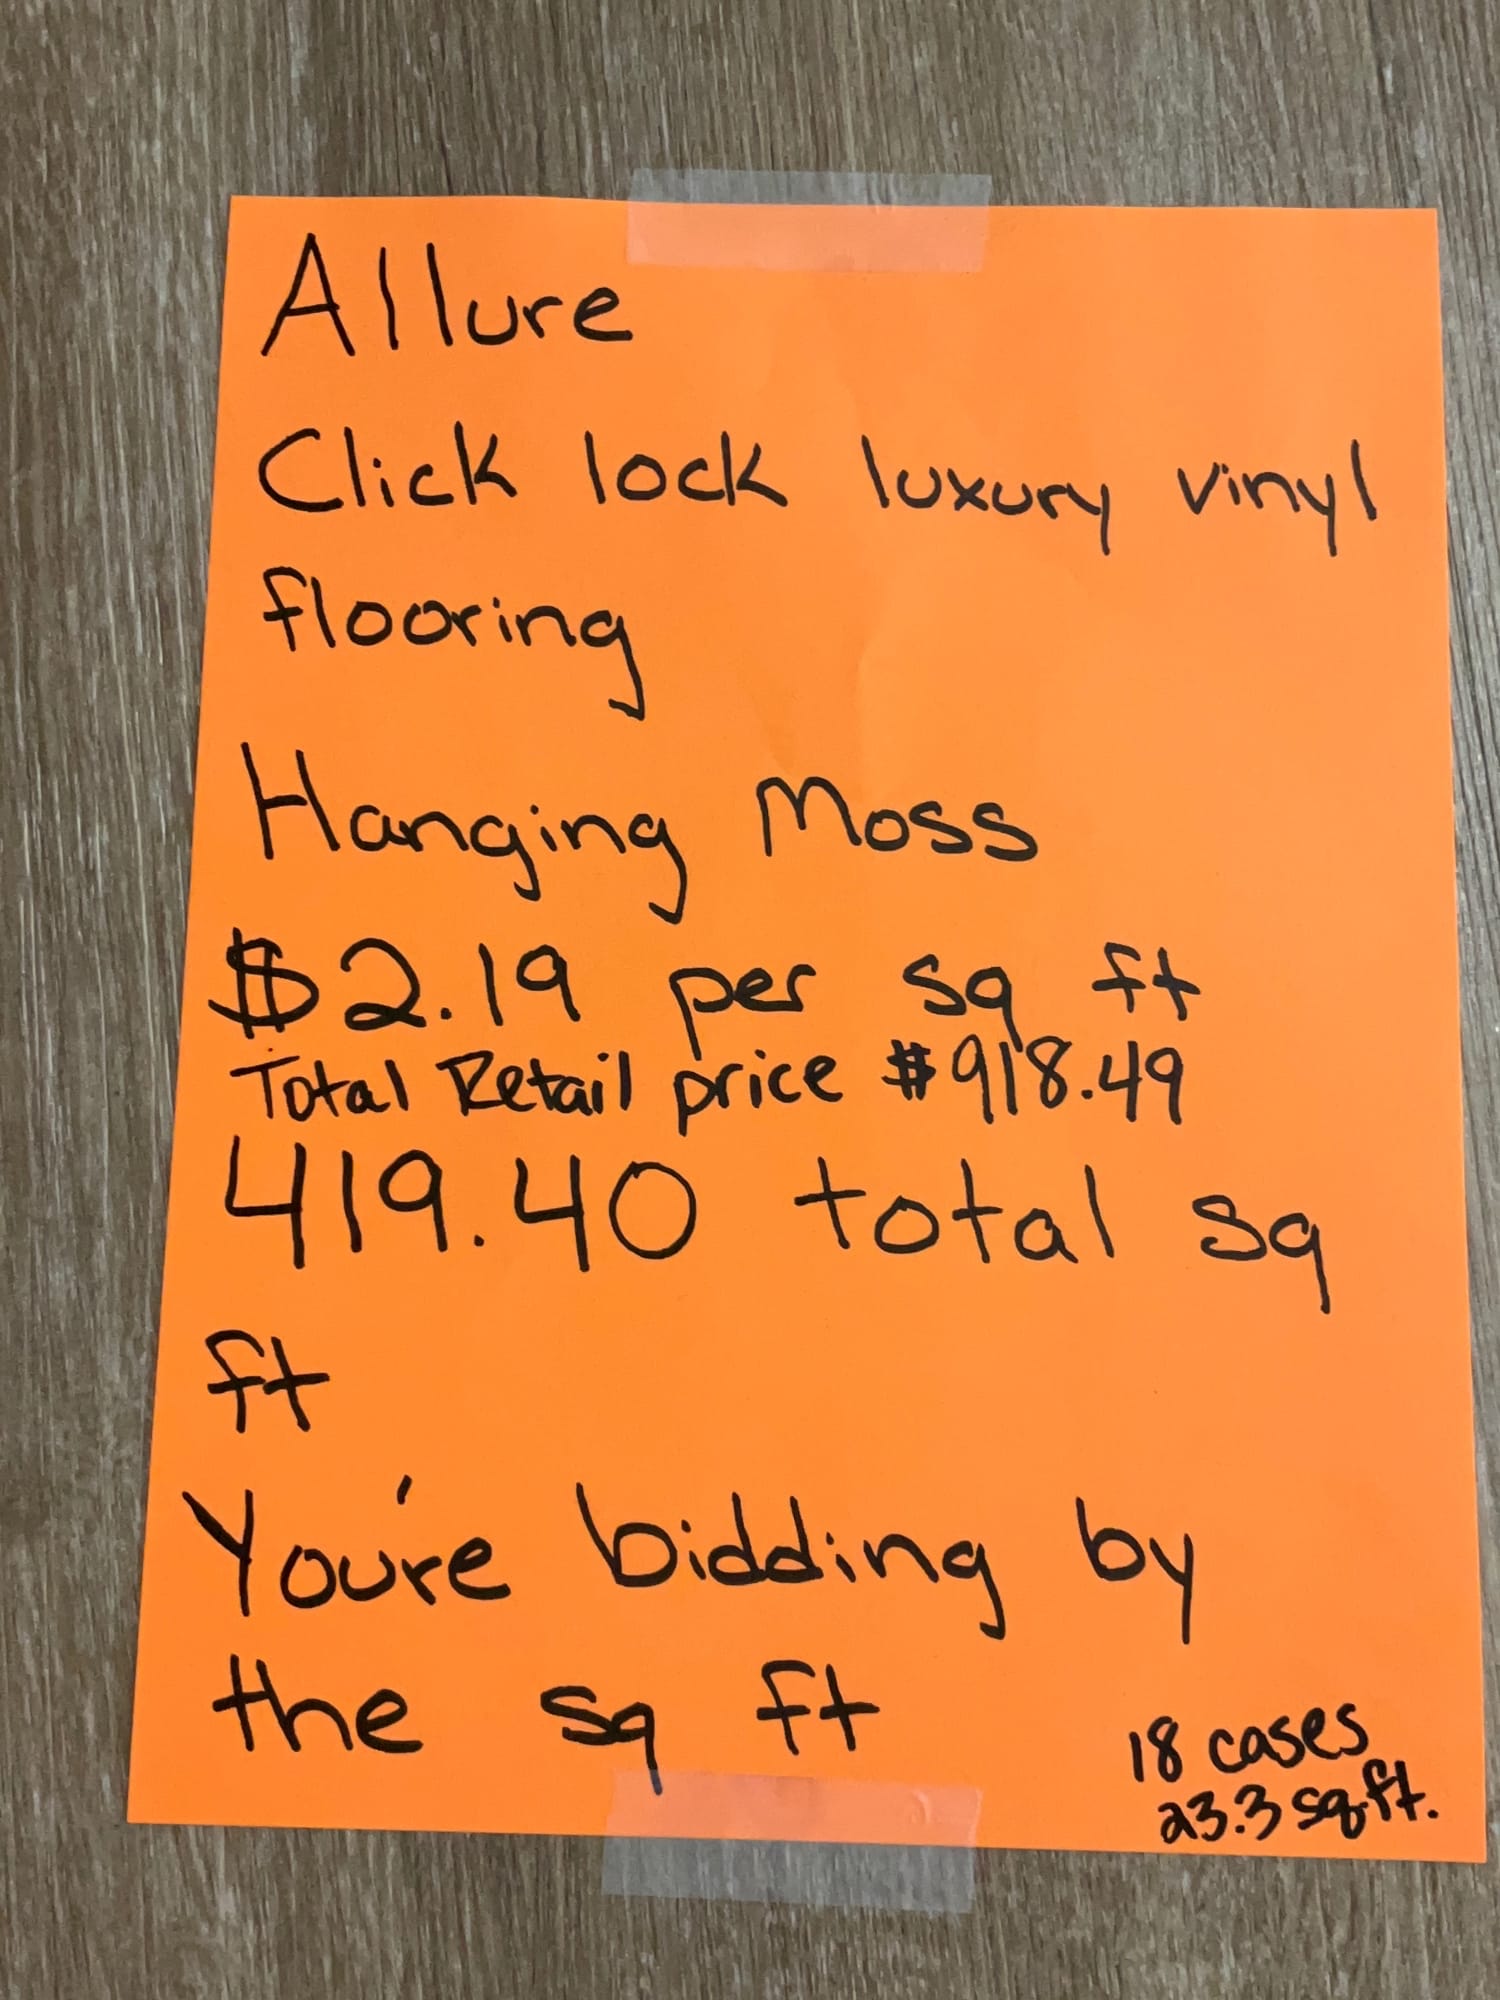 Allure
Click lock luxury vinyl
flooring
Hanging Moss
$2.19 per sq ft
Total Retail price $918.49
419.40 total sq
ft
You're bidding by
the sq ft
18 cases
23.3 sq.ft.